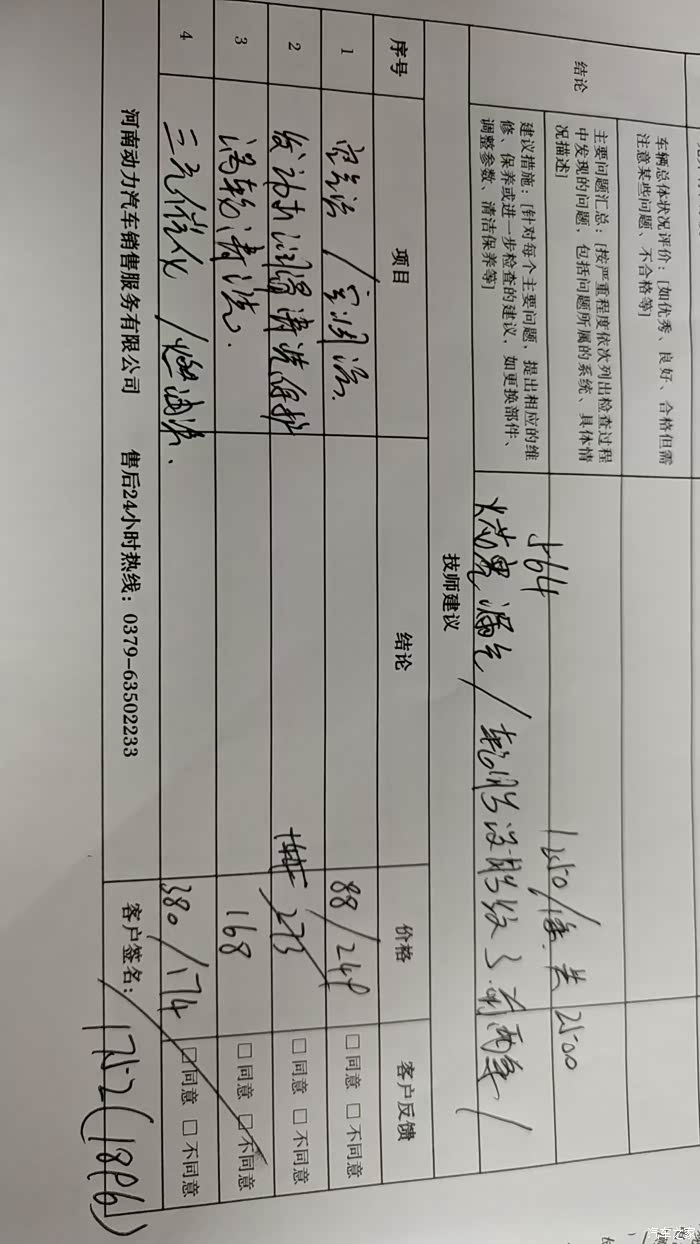 结论
车辆总体状况评价：[如优秀、良好、合格但需
注意某些问题、不合格等]
主要问题汇总：[按严重程度依次列出检查过程
中发现的问题，包括问题所属的系统、具体情
况描述]
564 1250/条 共2500
建议措施：[针对每个主要问题，提出相应的维
修、保养或进一步检查的建议，如更换部件、
调整参数、清洁保养等]
漏气/轮胎没胎纹了 前两条/
技师建议
序号 项目 结论 价格 客户反馈
1 空气滤/空调滤. 88/249 □同意 □不同意
2 发动机润滑清洗保护 273 □同意 □不同意
3 涡轮清洗. 168 □同意 □不同意
4 三元催化/燃油滤. 380/174 □同意 □不同意
河南动力汽车销售服务有限公司 售后24小时热线：0379-63502233 客户签名：
1752(1896)
汽车之家